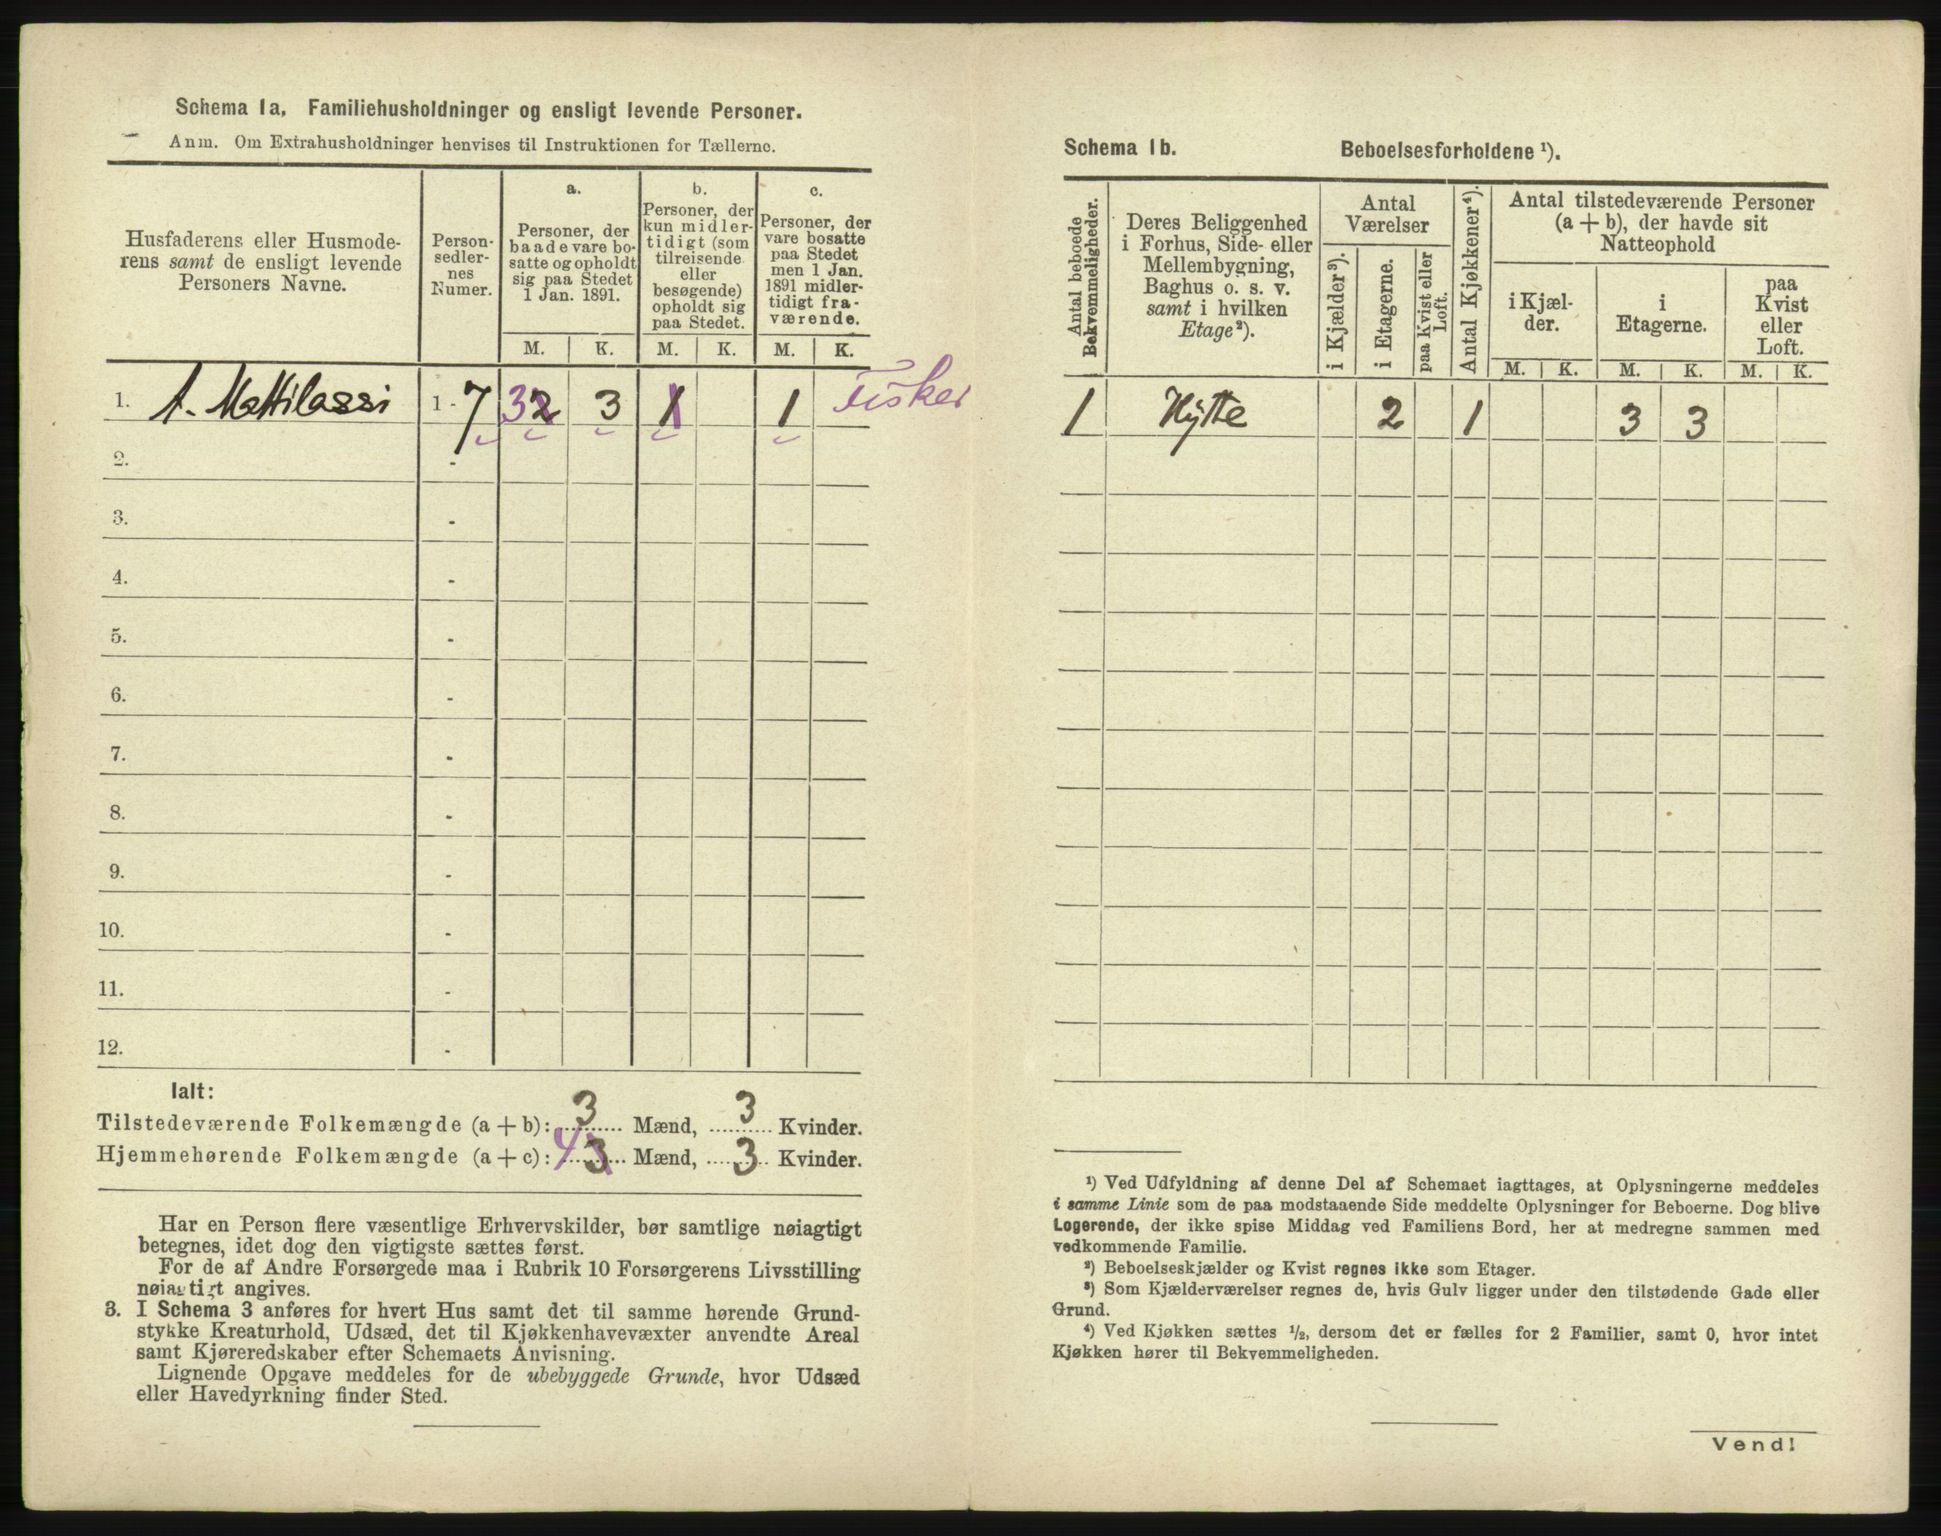 Schema 1a. Familiehusholdninger og ensligt levende Personer.
Anm. Om Extrahusholdninger henvises til Instruktionen for Tællerne.
Husfaderens eller Husmode-
rens samt de ensligt levende
Personers Navne.
Person-
sedler-
nes
Numer.
a.
Personer, der
baade vare bo-
satte og opholdt
sig paa Stedet
1 Jan. 1891.
b.
Personer, der
kun midler-
tidigt (som
tilreisende
eller
besøgende)
opholdt sig
paa Stedet.
c.
Personer, der
vare bosatte
paa Stedet
men 1 Jan.
1891 midler-
tidigt fra-
værende.
M. K. M. K. M. K.
1. A. Mattilassi 1 - 7 3 2 3 1 1 Fisker
2. -
3. -
4. -
5. -
6. -
7. -
8. -
9. -
10. -
11. -
12. -
Ialt:
Tilstedeværende Folkemængde (a + b): 3 Mænd, 3 Kvinder.
Hjemmehørende Folkemængde (a + c): 4 3 Mænd, 3 Kvinder.
Har en Person flere væsentlige Erhvervskilder, bør samtlige nøiagtigt
betegnes, idet dog den vigtigste sættes først.
For de af Andre Forsørgede maa i Rubrik 10 Forsørgerens Livsstilling
nøiagtigt angives.
3. I Schema 3 anføres for hvert Hus samt det til samme hørende Grund-
stykke Kreaturhold, Udsæd, det til Kjøkkenhavevæxter anvendte Areal
samt Kjøreredskaber efter Schemaets Anvisning.
Lignende Opgave meddeles for de ubebyggede Grunde, hvor Udsæd
eller Havedyrkning finder Sted.
Schema 1b. Beboelsesforholdene ¹).
Antal beboede
Bekvemmeligheder.
Deres Beliggenhed
i Forhus, Side- eller
Mellembygning,
Baghus o. s. v.
samt i hvilken
Etage²).
Antal
Værelser
i Kjælder³).
i Etagerne.
paa Kvist eller
Loft.
Antal Kjøkkener⁴).
Antal tilstedeværende Personer
(a + b), der havde sit
Natteophold
i Kjæl-
der.
i
Etagerne.
paa
Kvist
eller
Loft.
M. K. M. K. M. K.
1 Hytte 2 1 3 3
¹) Ved Udfyldning af denne Del af Schemaet iagttages, at Oplysningerne meddeles
i samme Linie som de paa modstaaende Side meddelte Oplysninger for Beboerne. Dog blive
Logerende, der ikke spise Middag ved Familiens Bord, her at medregne sammen med
vedkommende Familie.
²) Beboelseskjælder og Kvist regnes ikke som Etager.
³) Som Kjælderværelser regnes de, hvis Gulv ligger under den tilstødende Gade eller
Grund.
⁴) Ved Kjøkken sættes ½, dersom det er fælles for 2 Familier, samt 0, hvor intet
Kjøkken hører til Bekvemmeligheden.
Vend!